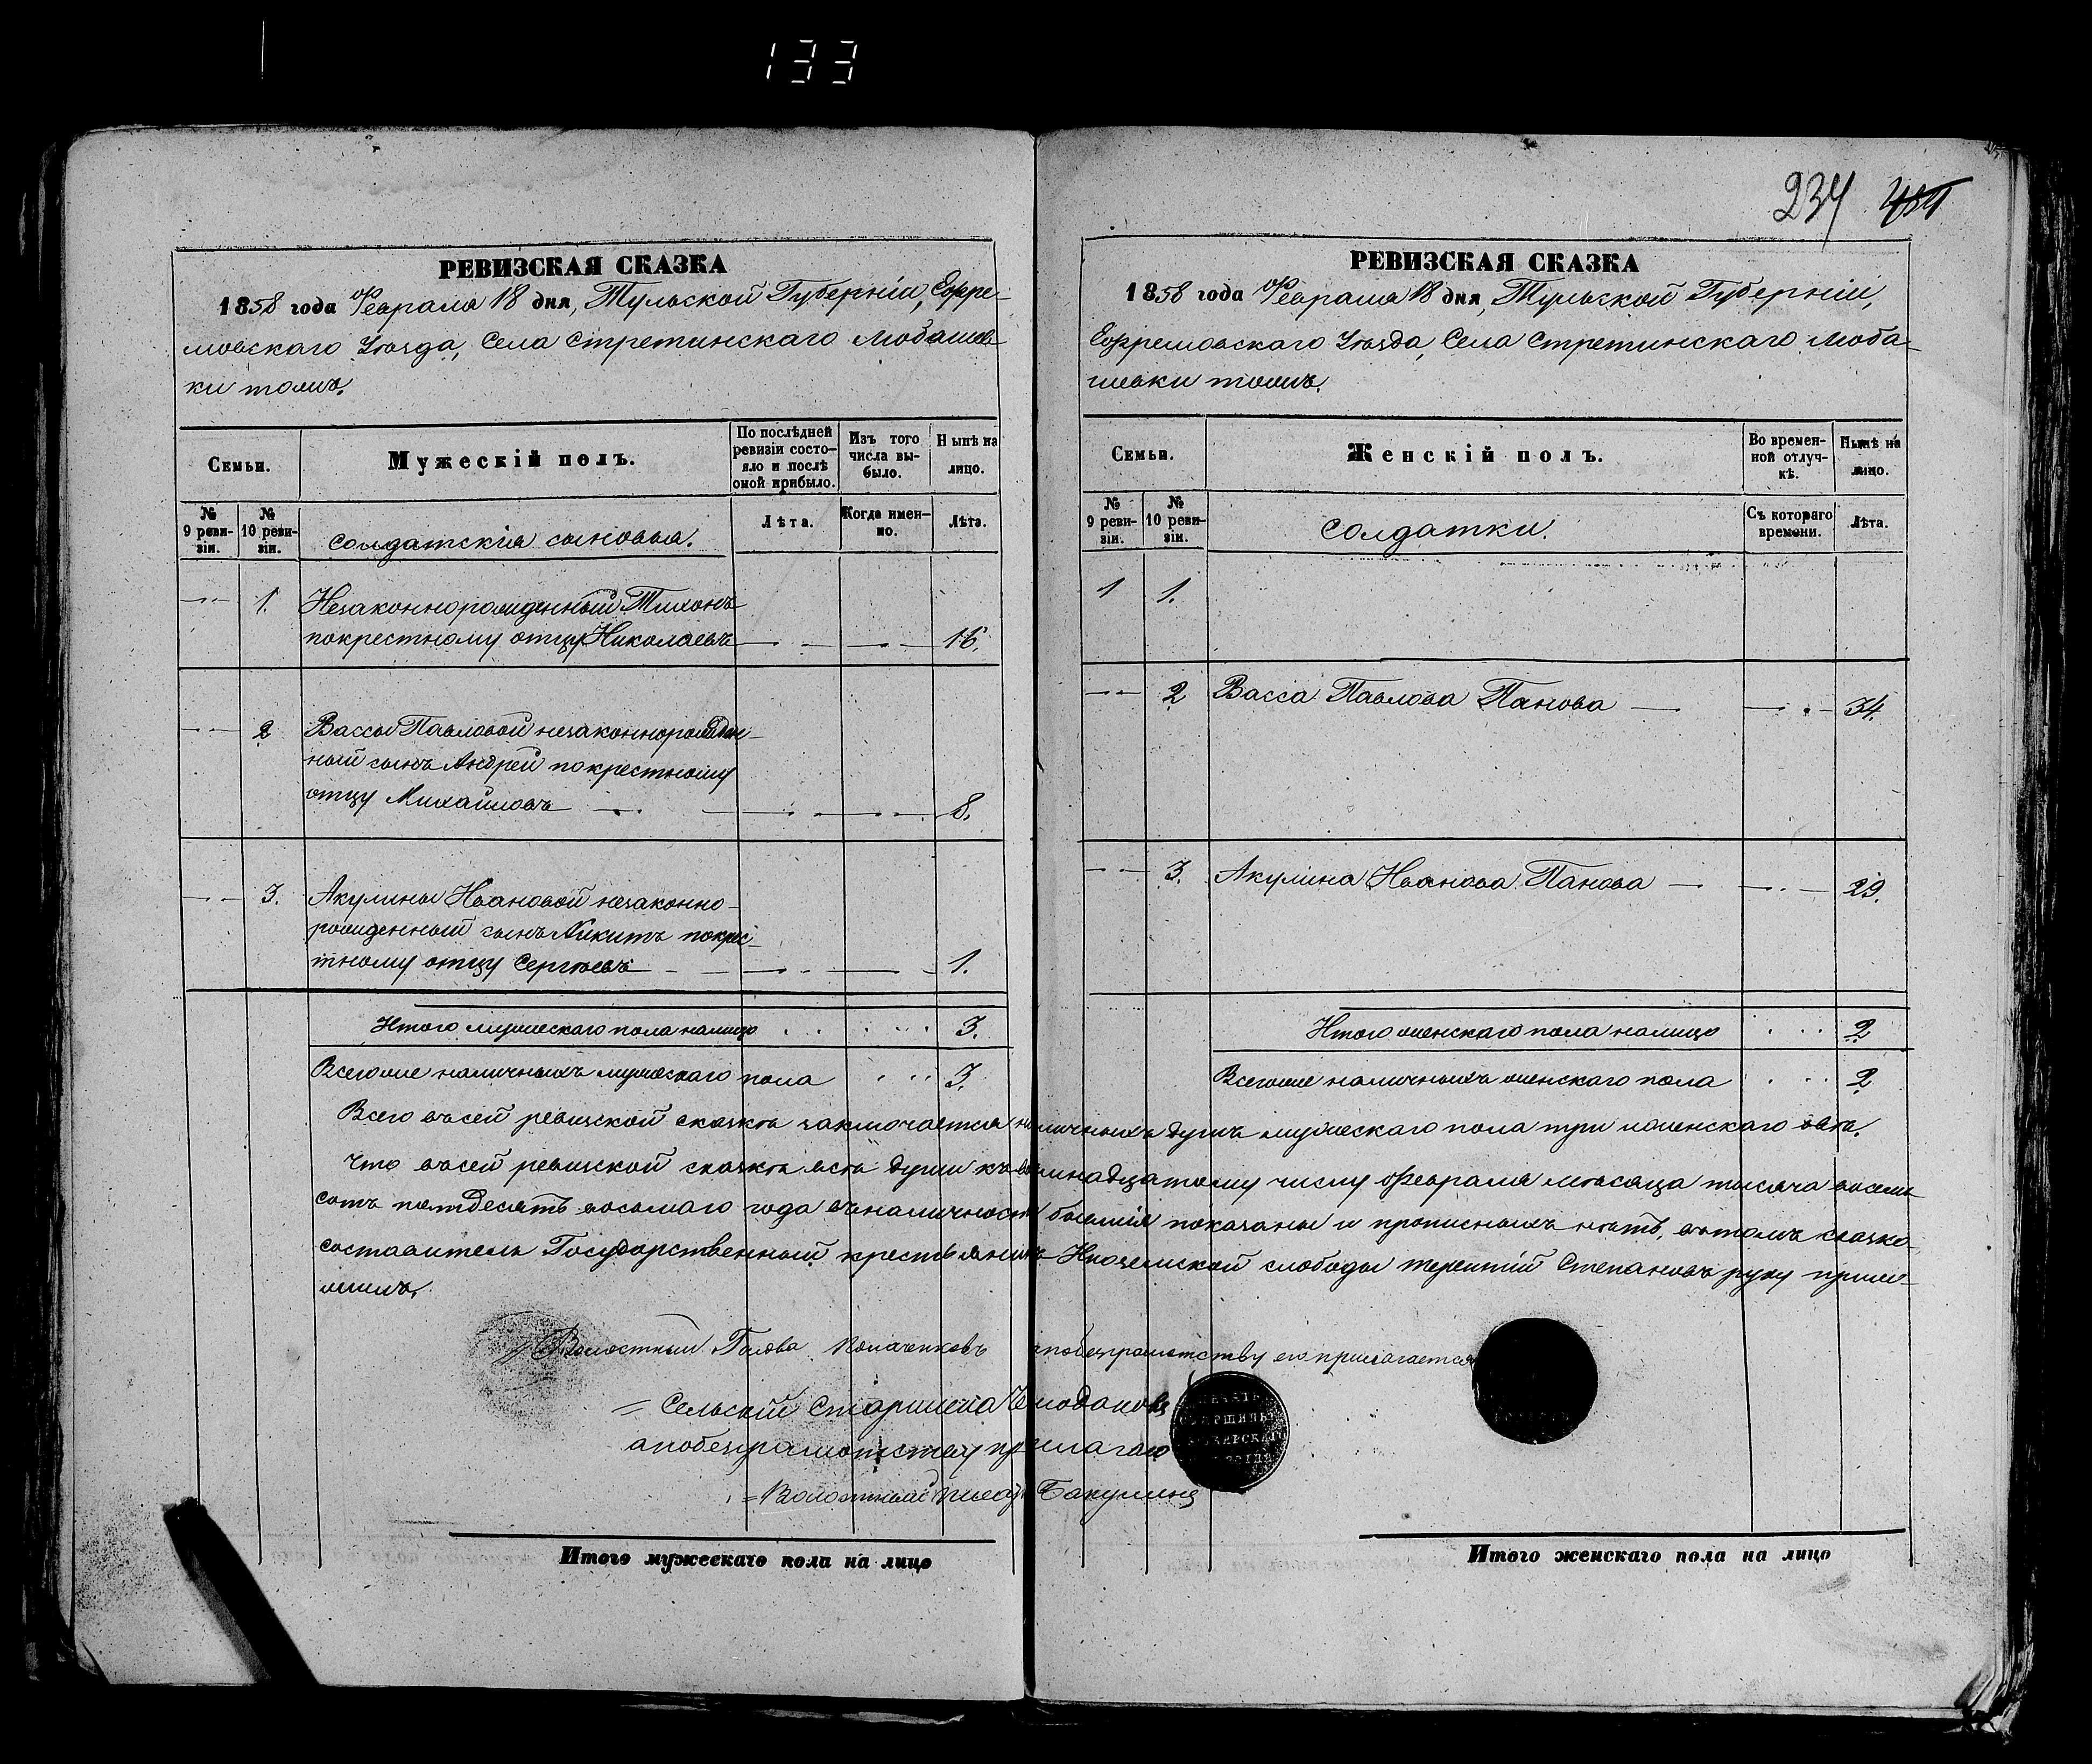 133
234
РЕВИЗСКАЯ СКАЗКА
1858 года Февраля 18 дня, Тульской Губерніи, Ефре-
мовскаго Уѣзда, Села Стретинскаго Любашев-
ки тожъ.
Семьи.
Мужескій полъ.
По послѣдней ревизіи состо-
яло и послѣ
оной прибыло.
Изъ того
числа вы-
было.
Нынѣ на
лицо.
№
9 реви-
зіи.
№
10 реви-
зіи.
Солдатскія сыновья.
Лѣта.
Когда имен-
но.
Лѣта.
1. Незаконнорожденный Тихонъ
покрестному отцу Николаевъ 16.
2 Вассы Павловой незаконнорожден-
ный сынъ Андрей покрестному
отцу Михайловъ 8.
3. Акулины Ивановой незаконно-
рожденный сынъ Никита покрес-
тному отцу Сергѣевъ 1.
Итого мужескаго пола налицо 3.
Всегоже наличныхъ мужескаго пола 3.
РЕВИЗСКАЯ СКАЗКА
1858 года Февраля 18 дня, Тульской Губерніи,
Ефремовскаго Уѣзда, Села Стретинскаго Люба-
шевки тожъ.
Семьи.
Женскій полъ.
Во времен-
ной отлуч-
кѣ.
Нынѣ на
лицо.
№
9 реви-
зіи.
№
10 реви-
зіи.
Солдатки.
Съ котораго
времени.
Лѣта.
1 1.
2 Васса Павлова Панова 34.
3. Акулина Иванова Панова 29.
Итого женскаго пола налицо 2
Всегоже наличныхъ женскаго пола 2
Всего въ сей ревизской сказкѣ заключается наличныхъ душъ мужескаго пола три иженскаго двѣ.
Что въ сей ревизской сказкѣ всѣ души къ восемнадцатому числу февраля мѣсяца тысяча восемь
сотъ пятдесятъ восьмаго года въ наличности бывшія показаны и прописныхъ нѣтъ, въ томъ сказко-
составитель Государственный крестьянинъ Иноземской слободы Терентій Степановъ руку прило-
жилъ.
Волостный Голова апобезграмотству его прилагается
Сельскій Старшина Чемодановъ
апобезграмотству прилагаю
Волостный писарь Бакулинъ
Итого мужескаго пола на лицо
Итого женскаго пола на лицо